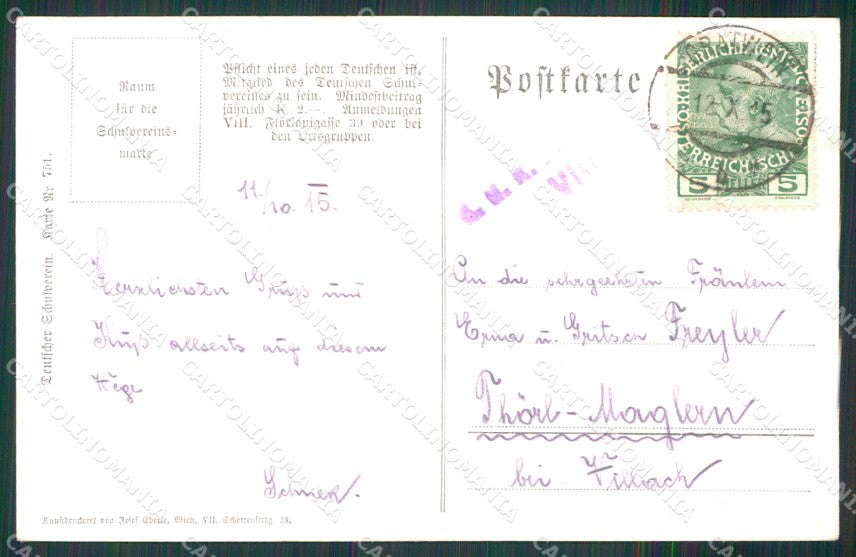 Raum
für die
Schulvereins-
marke
Pflicht eines jeden Deutschen ist,
Mitglied des Deutschen Schul-
vereines zu sein. Mindestbeitrag
jährlich K 2.—. Anmeldungen
VIII. Florianigasse 39 oder bei
den Ortsgruppen.
Deutscher Schulverein. Karte Nr. 751.
11./10. 15.
Herzlichsten Gruß und
Kuß allseits auf diesem
Wege
Kunstdruckerei von Josef Eberle, Wien, VII. Schottenfeldg. 38.
Postkarte
5 5
An die sehrgeehrten Fräulein
Erma u. Gritsch Freyler
Thörl-Maglern
bei Villach
CARTOLINOMANIA